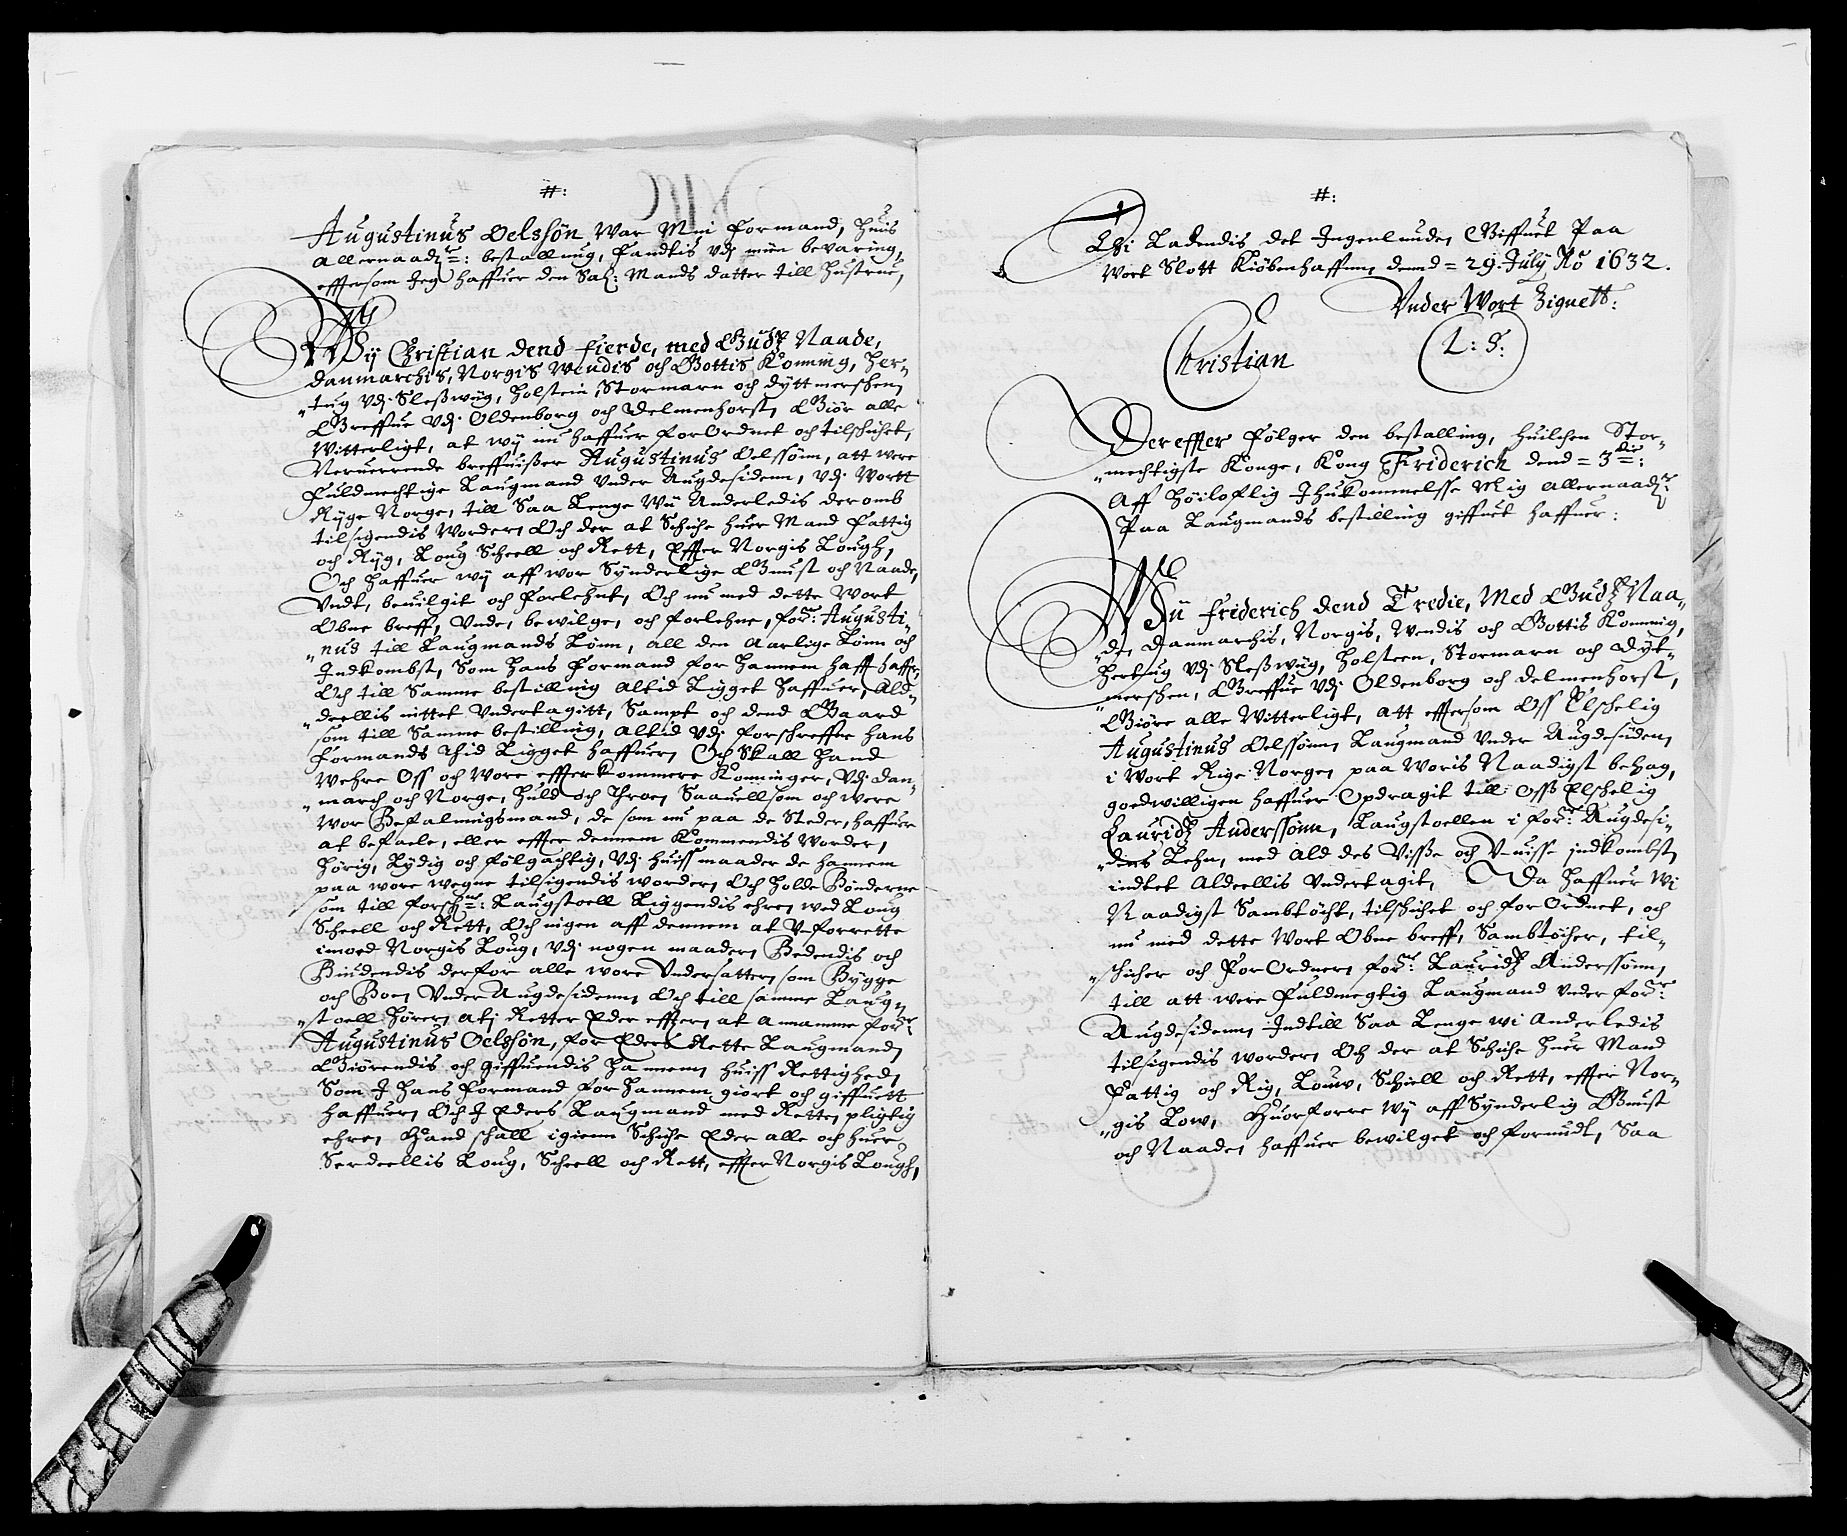 #:
Augustinus Oelssøn War Min formand, Huis
allernaadste: bestalling, fandtis udj min bevaring,
effersom Jeg haffuer den Sal: Mands datter till Hustrue,
Wij Christian dend fierde, med Gudz Naade,
Danmarchis, Norgis Wendis och Gottis Konning, Her-
"tug Vdj Sleszwig, Holstein, Stormarn och dyttmerschen,
Greffue Vdj Oldenborg och Delmenhorst, Giør alle
Witterligt, at wij nu haffuer forOrdnet och tilschichet,
Neruerrende breffuiszer Augustinus Oelssønn, att were
Fuldmechtige Laugmand Vnder Augdesidenn, Vdj Wortt
Rige Norge, till Saa Lenge Wij Anderledis deromb
tilsigendis Worder, Och der at Schiche huer Mand fattig
och Rig, Loug Scheell och Rett, Effter Norgis Lough,
Och haffuer wij aff wor Synderlige Gunst och Naade,
Vndt, beuilgit och forlehnt, Och nu med dette Wort
Obne breff, Vnde, bewilge, och forlehne, for: Augusti-
"nus till Laugmands Lønn, all den Aarlige Lønn och
Indkombst, Som hans formand for hannem hafft haffr,
Och till Samme bestilling altid Ligget haffuer, Ald-
"deellis inttet Vndertagitt, Sampt och dend Gaard
som till Samme bestilling, altid Vdj forschreffne hans
formands thid Ligget haffuer, Och Skall hand
Wehre Oss och Wore effterkommere Konninger, Vdj Dan-
"march och Norge, Huld och Throe, Saauellsom och were
Wor Befalningsmand, de som nu paa de Steder, haffuer
at befaele, eller effter dennem Kommendis Worder,
hørig, Lydig och følgachtig, Vdj huiss maader de hannem
paa wore wegne tilsigendis worder, Och holde Bønderne
som till forschne: Laugstoell Liggendis ehre, wed Loug
Scheell och Rett, Och ingen aff dennem at V-forrette
imoed Norgis Loug, Vdj nogen maader, Bedendis och
Biudendis derfor alle wore Vndersatter, som Bygge
och Boe, Vnder Augdesidenn, Och till samme Laug-
"stoell Hører, atj Retter Eder effter, at annamme forne
Augustinus Oelssøn, for Eders Rette Laugmand,
Giørendis och giffuendis hannem, huiss Rettighed,
Som J hans formand for hannem giort och giffuett
haffuer, Och J Eders Laugmand med Rette, pligtig
ehre, Hand schall igienn Schiche Eder alle och huer
Serdeellis Loug, Scheell och Rett, effter Norgis Lough,
#:
Ladendis det Ingenlunde, Giffuet Paa
Wort Slott Kiøbenhaffnn, dennd = 29. July Ao 1632.
Vnder Wort Zignett:
Christian
L: S:
Dereffter følger den bestalling, huilchen Stor-
"mechtigste Konge, Kong Friderich dend = 3die:
Aff Høiloflig Ihukommelsse Mig allernaadst
Paa Laugmands bestilling giffuet haffuer:
Wii Friderich Dend Tredie, Med Gudz Naa-
"de, Danmarchis, Norgis, Wendis och Gottis Konning,
Hertug Vdj Sleszwiig, Holsteen, Stormarn och Dyt-
"merschen, Greffue Vdj Oldenborg och Delmenhorst,
Giøre alle Witterligt, att effterson Oss Elschelig
Augustinus Oelssønn, Laugmand Vnder Augdesiden,
i Wort Rige Norge, paa Woris Naadigst behag,
goedwilligen haffuer Opdragit till Oss Elschelig
Lauridz Anderssønn, Laugstoellen i forne: Augdesi-
"dens Lehn, med Ald des Visse och V-uisse jndkombst,
indtet Aldeellis Vndertagit, Da haffuer Wi
Naadigst Sambtøcht, tilschichet och forOrdnet, och
nu med dette Wort Obne breff, Sambtøcher, til-
"schicher och ForOrdner, forne: Lauridz Anderssønn,
till att were Fuldmegtig Laugmand Vnder forne:
Augdesidenn, Indtill Saa Lenge wi Anderledis
tilsigendis worder, Och der at Schiche huer Mand
Fattig och Rig, Louw, Schiell och Rett, effter Nor-
"gis Low, Huorforre Wij aff Synderlig Gunst
och Naade, haffuer bewilget och forundt, Saa